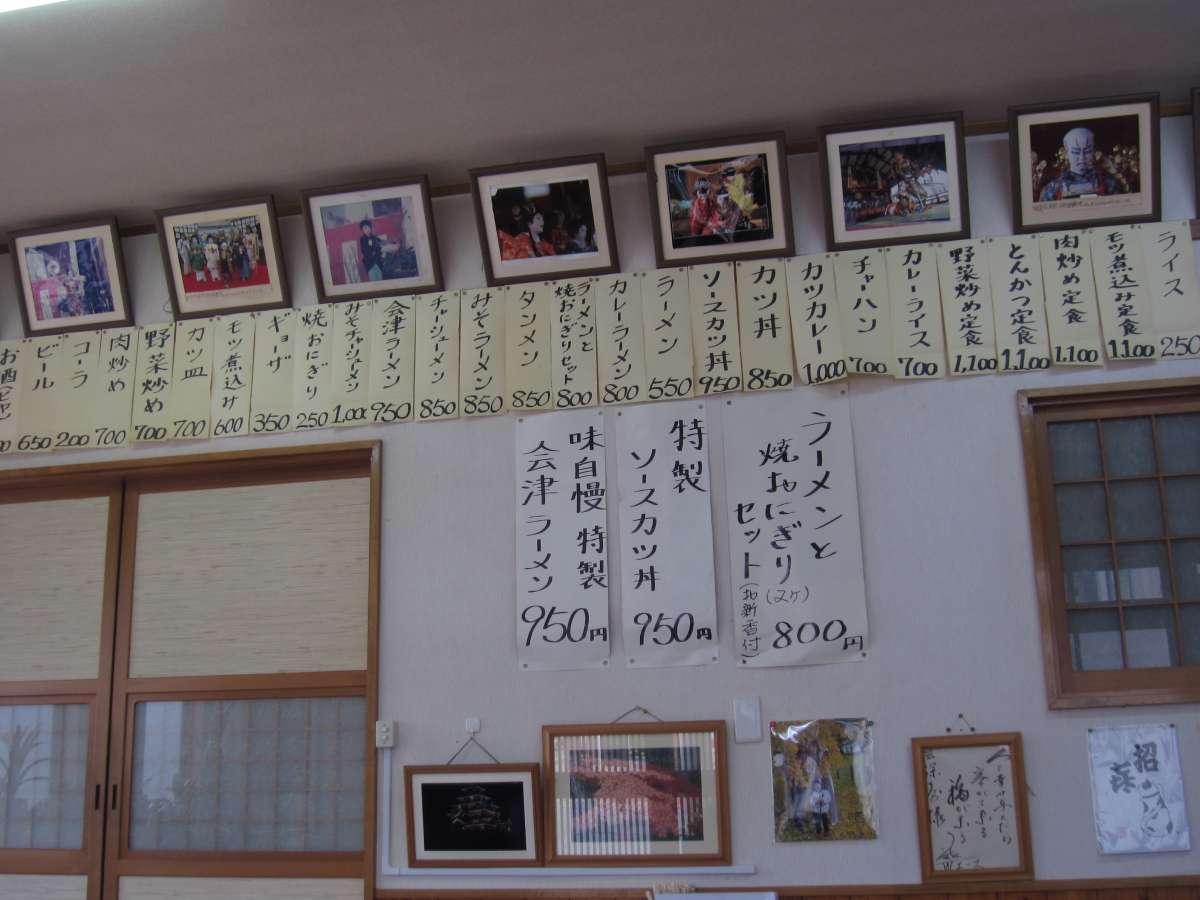 ライス
250
モツ煮込み定食
1,100
肉炒め定食
1,100
とんかつ定食
1,100
野菜炒め定食
1,100
カレーライス
700
チャーハン
700
カツカレー
1,000
カツ丼
850
ソースカツ丼
950
ラーメン
550
カレーラーメン
800
ラーメンと
焼おにぎりセット
800
タンメン
850
みそラーメン
850
チャシューメン
850
会津ラーメン
950
みそチャシューメン
1,000
焼おにぎり
250
ギョーザ
350
モツ煮込み
600
カツ皿
700
野菜炒め
700
肉炒め
700
コーラ
200
ビール
650
お酒
ラーメンと
焼おにぎり
セット
(ヌケ)
(お新香付)
800円
特製
ソースカツ丼
950円
味自慢 特製
会津 ラーメン
950円
招
喜